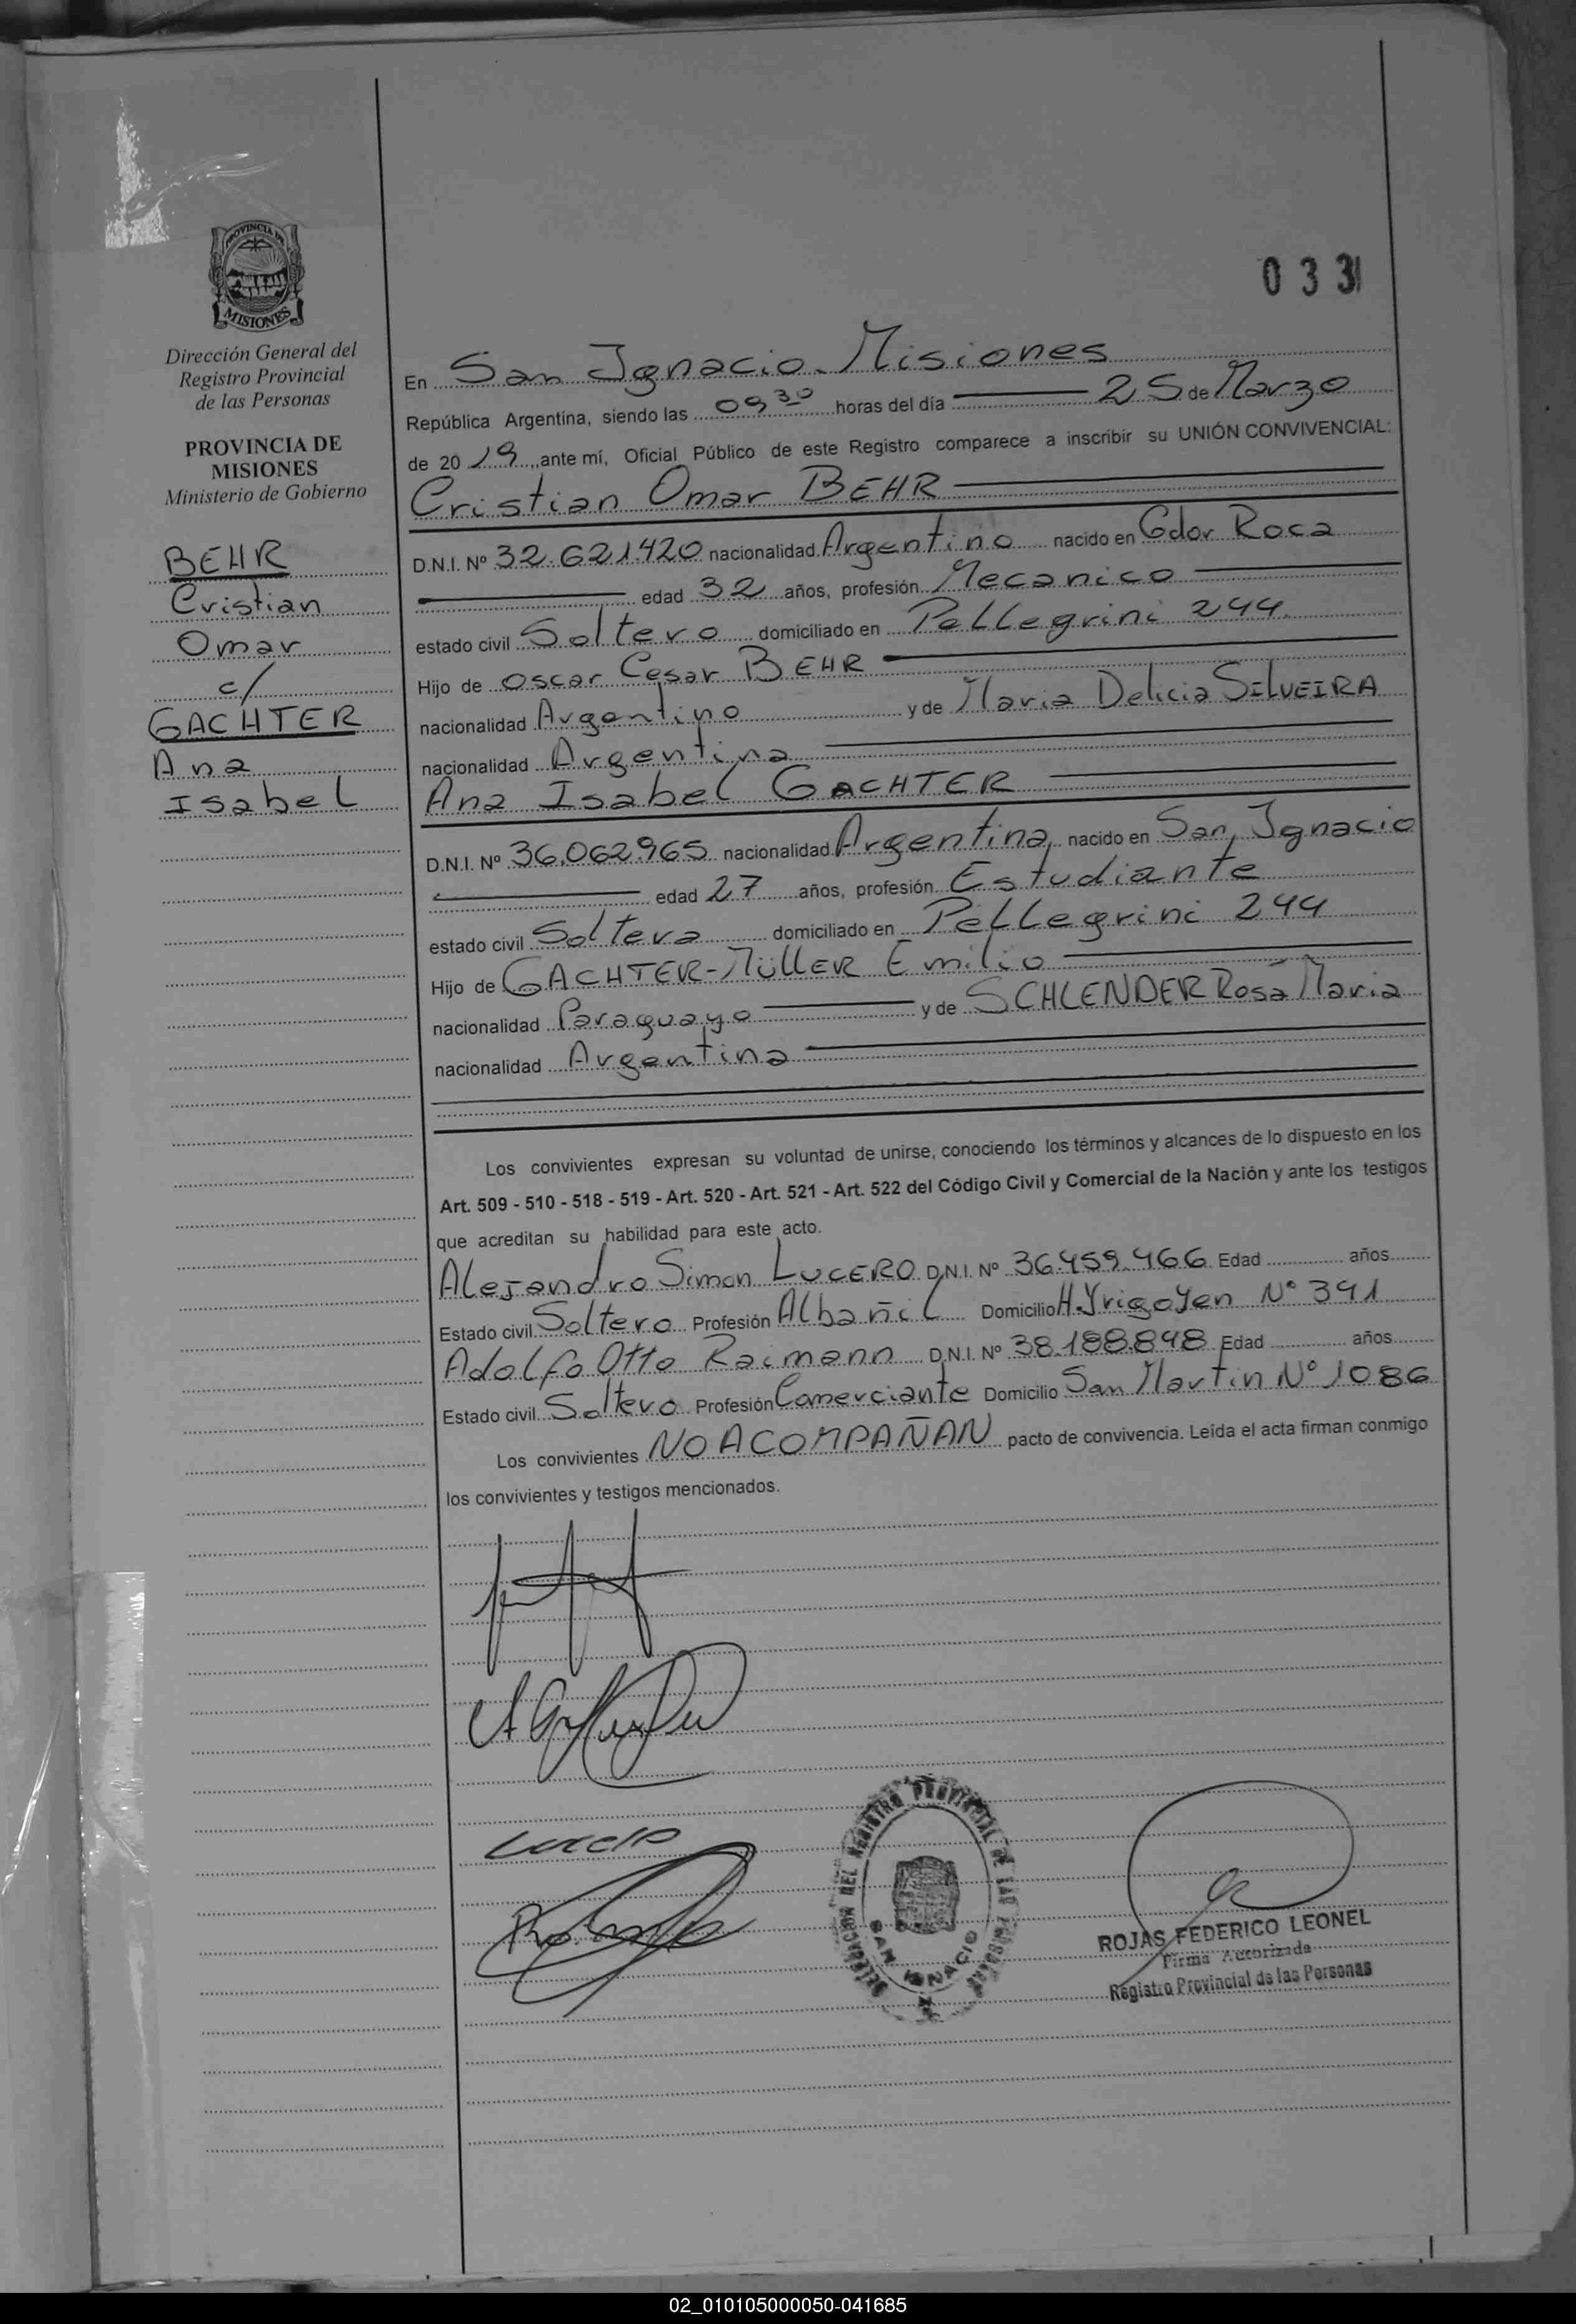 033
PROVINCIA DE
MISIONES
Dirección General del
Registro Provincial
de las Personas
PROVINCIA DE
MISIONES
Ministerio de Gobierno
BEHR
Cristian
Omar
c/
GACHTER
Ana
Isabel
En San Ignacio. Misiones
República Argentina, siendo las 09 30 horas del día 25 de Marzo
de 20 19 ,ante mí, Oficial Público de este Registro comparece a inscribir su UNIÓN CONVIVENCIAL:
Cristian Omar BEHR
D.N.I. Nº 32.621.420 nacionalidad Argentino nacido en Gdor Roca
edad 32 años, profesión Mecanico
estado civil Soltero domiciliado en Pellegrini 244
Hijo de Oscar Cesar BEHR
nacionalidad Argentino y de Maria Delicia SILVEIRA
nacionalidad Argentina
Ana Isabel GACHTER
D.N.I. Nº 36.062.965 nacionalidad Argentina, nacido en San Ignacio
edad 27 años, profesión Estudiante
estado civil Soltera domiciliado en Pellegrini 244
Hijo de GACHTER-MÜLLER Emilio
nacionalidad Paraguayo y de SCHLENDER Rosa Maria
nacionalidad Argentina
Los convivientes expresan su voluntad de unirse, conociendo los términos y alcances de lo dispuesto en los
Art. 509 - 510 - 518 - 519 - Art. 520 - Art. 521 - Art. 522 del Código Civil y Comercial de la Nación y ante los testigos
que acreditan su habilidad para este acto.
Alejandro Simon LUCERO D.N.I. Nº 36.459.466 Edad años
Estado civil Soltero Profesión Albañil Domicilio H. Yrigoyen Nº 391
Adolfo Otto Raimann D.N.I. Nº 38.188.848 Edad años
Estado civil Soltero Profesión Comerciante Domicilio San Martin Nº 1086
Los convivientes NO ACOMPAÑAN pacto de convivencia. Leída el acta firman conmigo
los convivientes y testigos mencionados.
DELEGACION DEL REGISTRO PROVINCIAL DE LAS PERSONAS
SAN IGNACIO
ROJAS FEDERICO LEONEL
Firma Autorizada
Registro Provincial de las Personas
02_010105000050-041685